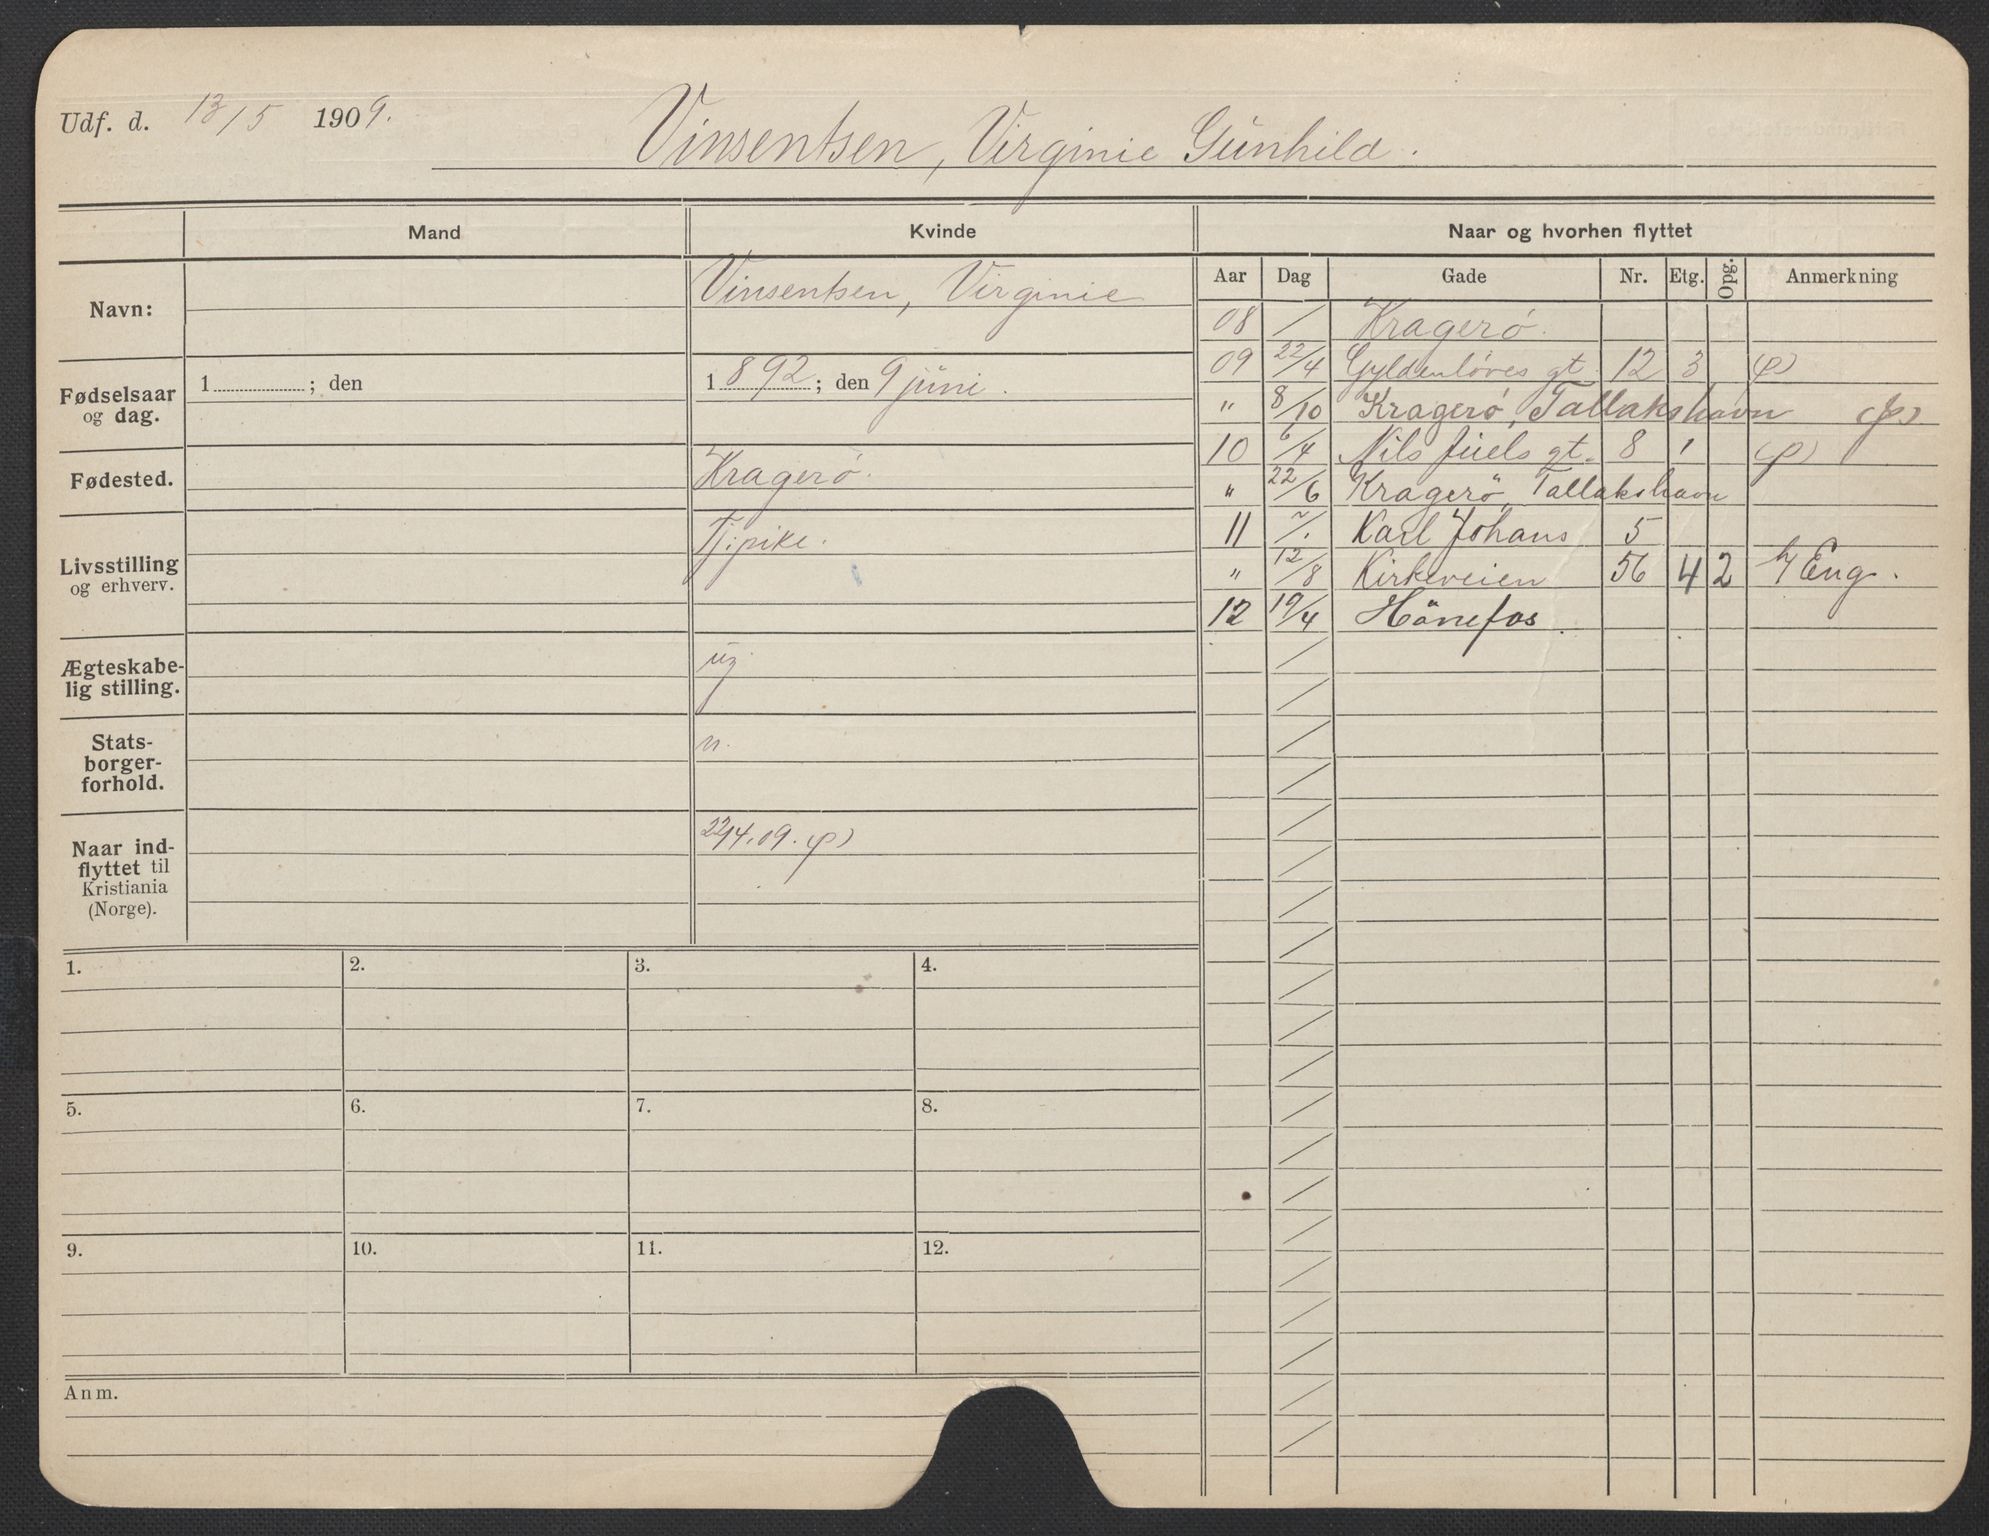 Udf. d. 13/5 1909.
Vinsentsen, Virginie Gunhild.
Mand Kvinde Naar og hvorhen flyttet
Aar Dag Gade Nr. Etg. Opg. Anmerkning
Navn: Vinsentsen, Virginie
Fødselsaar og dag. 1 ; den 1892; den 9 juni.
Fødested. Kragerø.
Livsstilling og erhverv. Tj.pike.
Ægteskabe-
lig stilling. ug
Stats-
borger-
forhold. n.
Naar ind-
flyttet til
Kristiania
(Norge). 22/4.09. (p)
08 / Kragerø.
09 22/4 Gyldenløves gt. 12 3 (p)
" 8/10 Kragerø, Tallakshavn (p)
10 6/4 Nils Juels gt. 8 1 (p)
" 22/6 Kragerö, Tallakshavn
11 ~/. Karl Johans 5
" 12/8 Kirkeveien 56 4 2 h/ Eng.
12 19/4 Hönefos.
1. 2. 3. 4.
5. 6. 7. 8.
9. 10. 11. 12.
Anm.